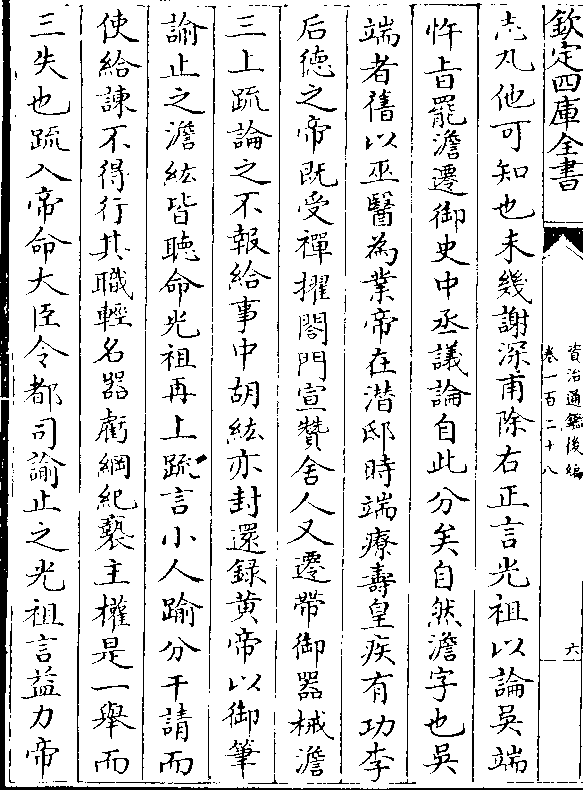 欽定四庫全書
資治通鑑後編
卷一百二十八
六
志凡他可知也未幾謝深甫除右正言光祖以論吳端
忤旨罷澹遷御史中丞議論自此分矣自然澹字也吳
端者舊以巫醫為業帝在潛邸時端療壽皇疾有功李
后德之帝既受禪擢閤門宣贊舍人又遷帶御器械澹
三上疏論之不報給事中胡紘亦封還録黄帝以御筆
諭止之澹紘皆聽命光祖再上疏言小人踰分干請而
使給諫不得行其職輕名器虧綱紀褻主權是一舉而
三失也疏入帝命大臣令都司諭止之光祖言益力帝